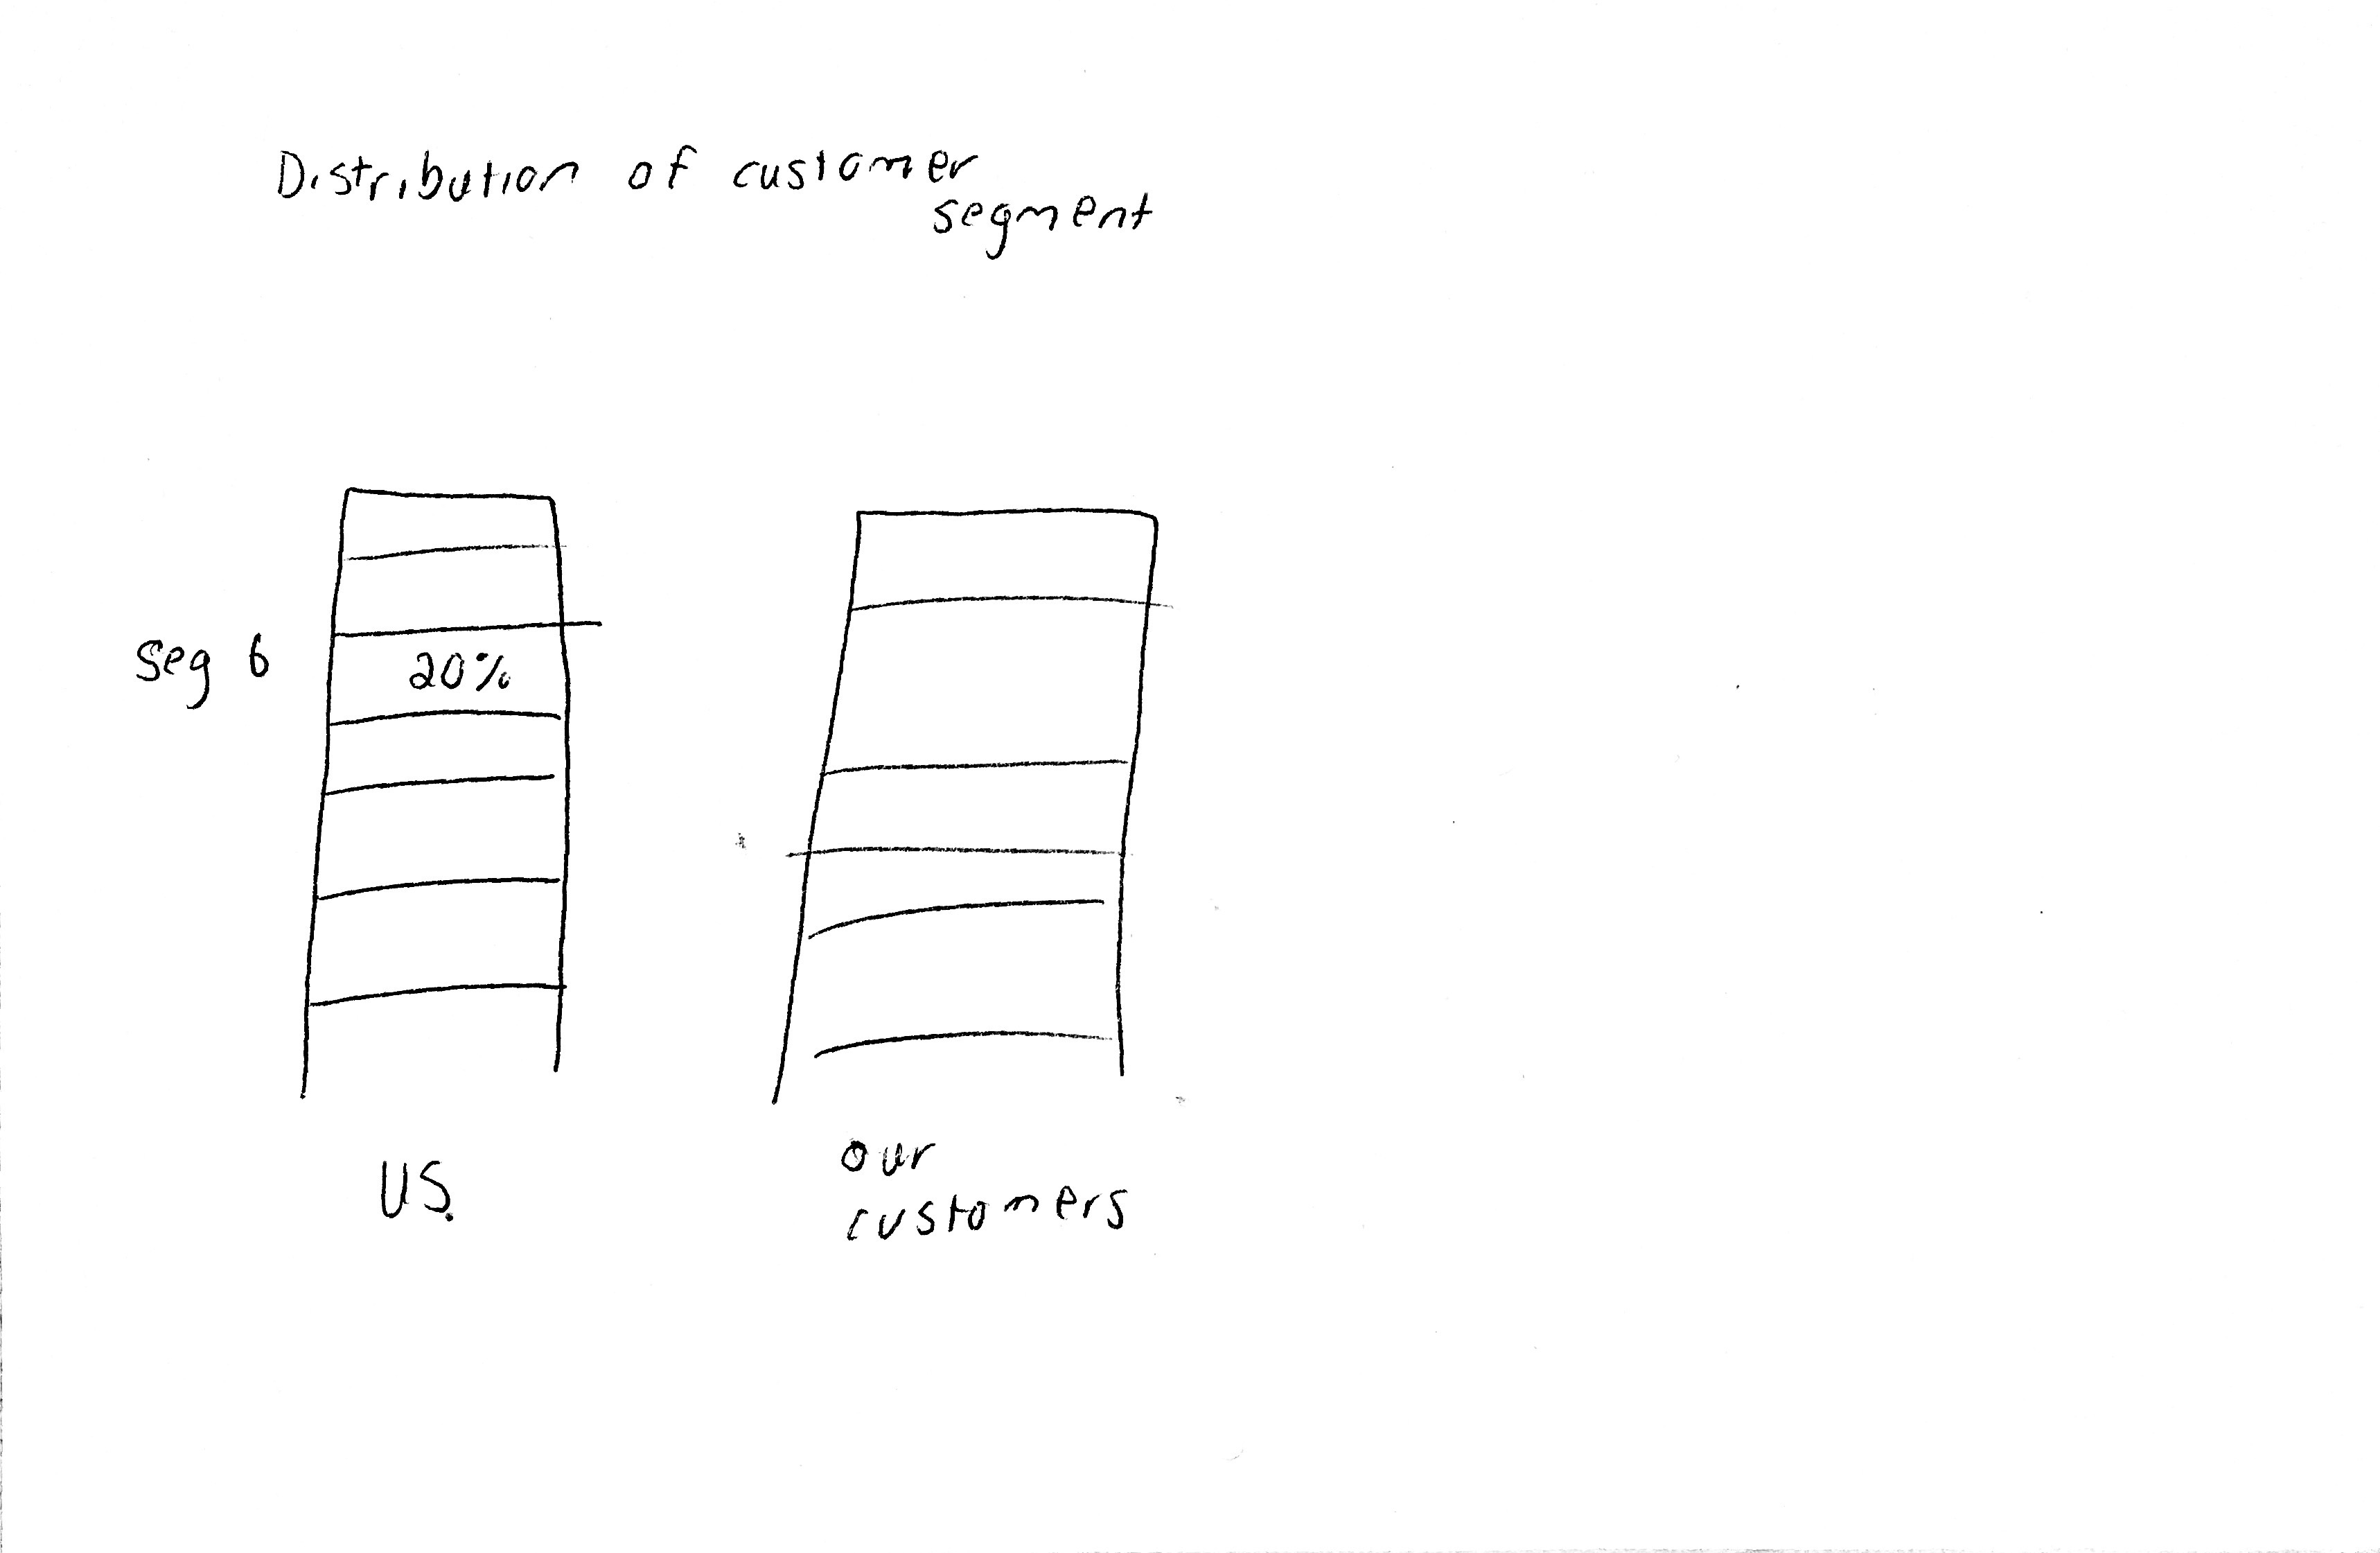 Distribution of customer
segment
Seg 6
20%
US.
our
customers